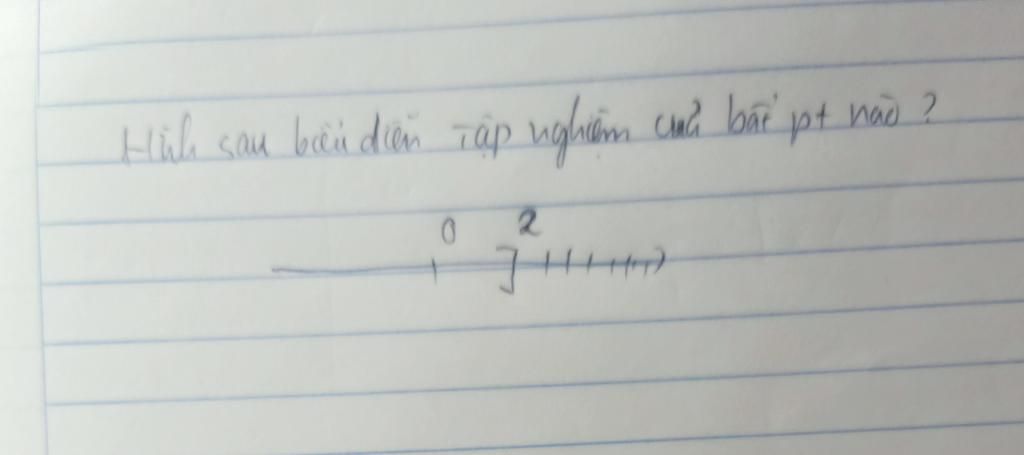 Hình sau biểu diễn tập nghiệm của bất pt nào ?
0 2
]